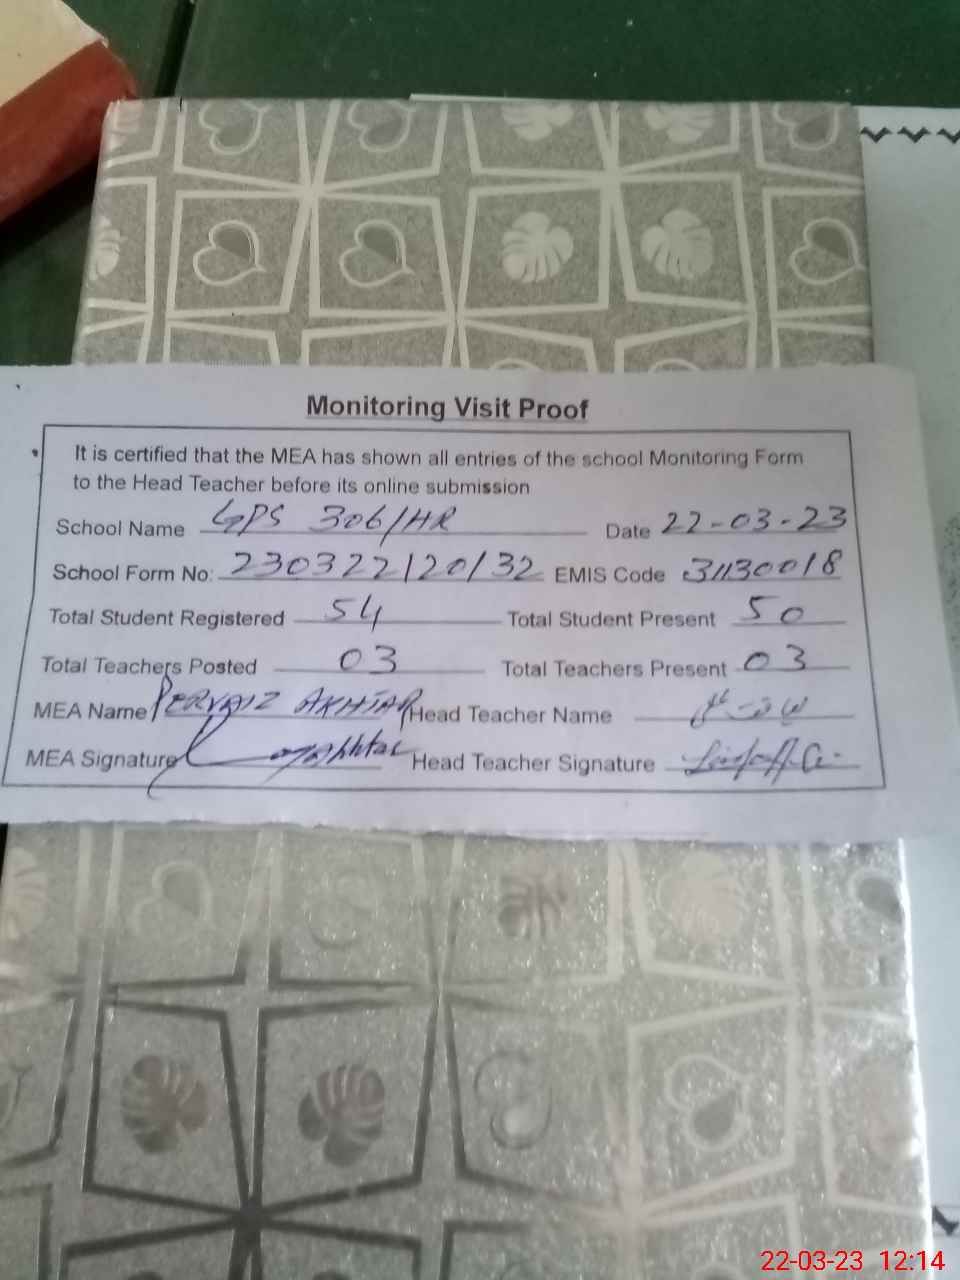 Monitoring Visit Proof
It is certified that the MEA has shown all entries of the school Monitoring Form
to the Head Teacher before its online submission
School Name GPS 306/HR Date 22-03-23
School Form No: 230322120132 EMIS Code 31130018
Total Student Registered 54 Total Student Present 50
Total Teachers Posted 03 Total Teachers Present 03
MEA Name PERVAIZ AKHTAR Head Teacher Name لیاقت علی
MEA Signature Head Teacher Signature
22-03-23 12:14